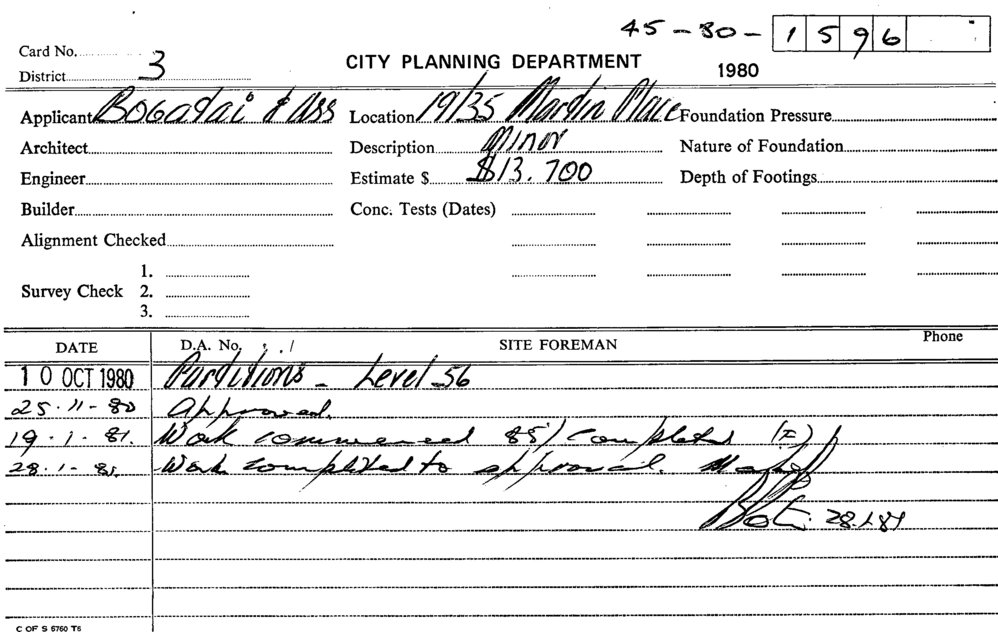 45-80-1596
Card No.
District 3
CITY PLANNING DEPARTMENT 1980
Applicant Bogadai & Ass Location 19/35 Martin Place Foundation Pressure
Architect Description Minor Nature of Foundation
Engineer Estimate $ $13.700 Depth of Footings
Builder Conc. Tests (Dates)
Alignment Checked
1.
Survey Check 2.
3.
DATE D.A. No. SITE FOREMAN Phone
10 OCT 1980 Partitions - Level 56
25.11-80 Approved.
19.1.81. Work commenced 85% completed
28.1-81. Work completed to approval.
28.1.81
C OF S 6760 T6